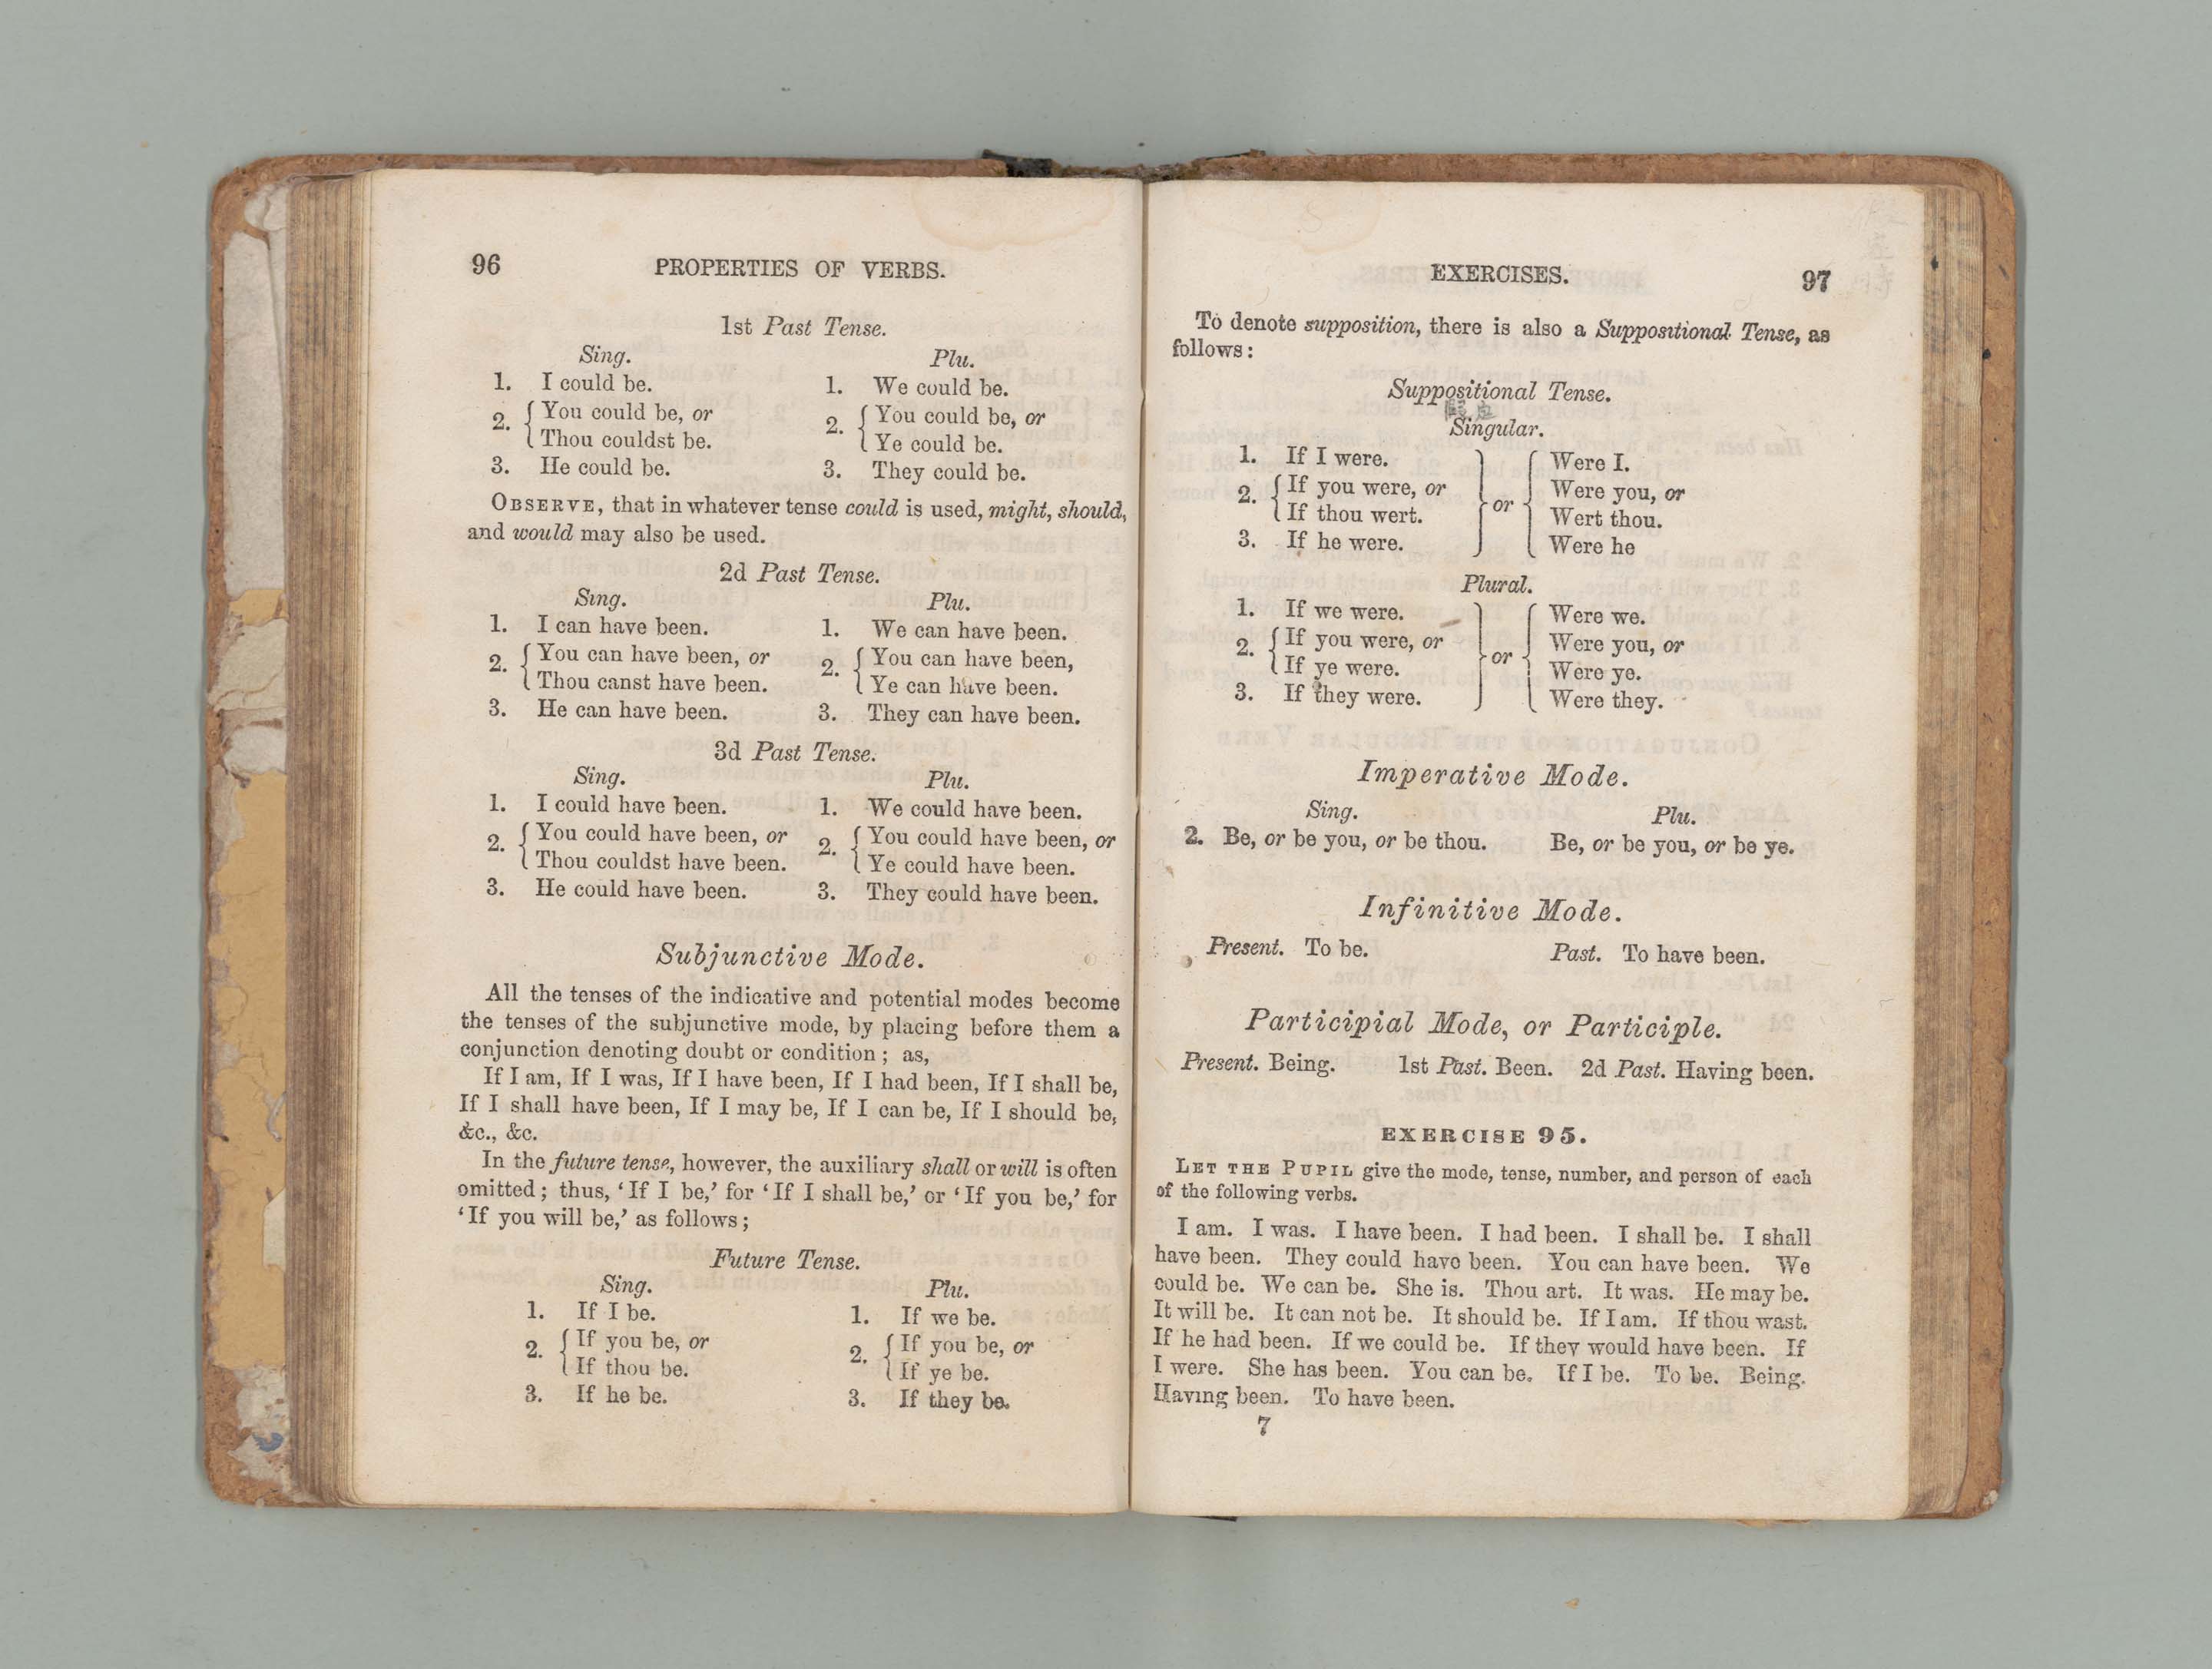 96 PROPERTIES OF VERBS.
1st Past Tense.
Sing. Plu.
1. I could be. 1. We could be.
2. { You could be, or 2. { You could be, or
Thou couldst be. Ye could be.
3. He could be. 3. They could be.
OBSERVE, that in whatever tense could is used, might, should,
and would may also be used.
2d Past Tense.
Sing. Plu.
1. I can have been. 1. We can have been.
2. { You can have been, or 2. { You can have been,
Thou canst have been. Ye can have been.
3. He can have been. 3. They can have been.
3d Past Tense.
Sing. Plu.
1. I could have been. 1. We could have been.
2. { You could have been, or 2. { You could have been, or
Thou couldst have been. Ye could have been.
3. He could have been. 3. They could have been.
Subjunctive Mode.
All the tenses of the indicative and potential modes become
the tenses of the subjunctive mode, by placing before them a
conjunction denoting doubt or condition; as,
If I am, If I was, If I have been, If I had been, If I shall be,
If I shall have been, If I may be, If I can be, If I should be,
&c., &c.
In the future tense, however, the auxiliary shall or will is often
omitted; thus, ‘If I be,’ for ‘If I shall be,’ or ‘If you be,’ for
‘If you will be,’ as follows;
Future Tense.
Sing. Plu.
1. If I be. 1. If we be.
2. { If you be, or 2. { If you be, or
If thou be. If ye be.
3. If he be. 3. If they be.
EXERCISES. 97
To denote supposition, there is also a Suppositional Tense, as
follows:
Suppositional Tense.
Singular.
1. If I were. Were I.
2. { If you were, or } or { Were you, or
If thou wert. Wert thou.
3. If he were. Were he
Plural.
1. If we were. Were we.
2. { If you were, or } or { Were you, or
If ye were. Were ye.
3. If they were. Were they.
Imperative Mode.
Sing. Plu.
2. Be, or be you, or be thou. Be, or be you, or be ye.
Infinitive Mode.
Present. To be. Past. To have been.
Participial Mode, or Participle.
Present. Being. 1st Past. Been. 2d Past. Having been.
EXERCISE 95.
LET THE PUPIL give the mode, tense, number, and person of each
of the following verbs.
I am. I was. I have been. I had been. I shall be. I shall
have been. They could have been. You can have been. We
could be. We can be. She is. Thou art. It was. He may be.
It will be. It can not be. It should be. If I am. If thou wast.
If he had been. If we could be. If they would have been. If
I were. She has been. You can be. If I be. To be. Being.
Having been. To have been.
7